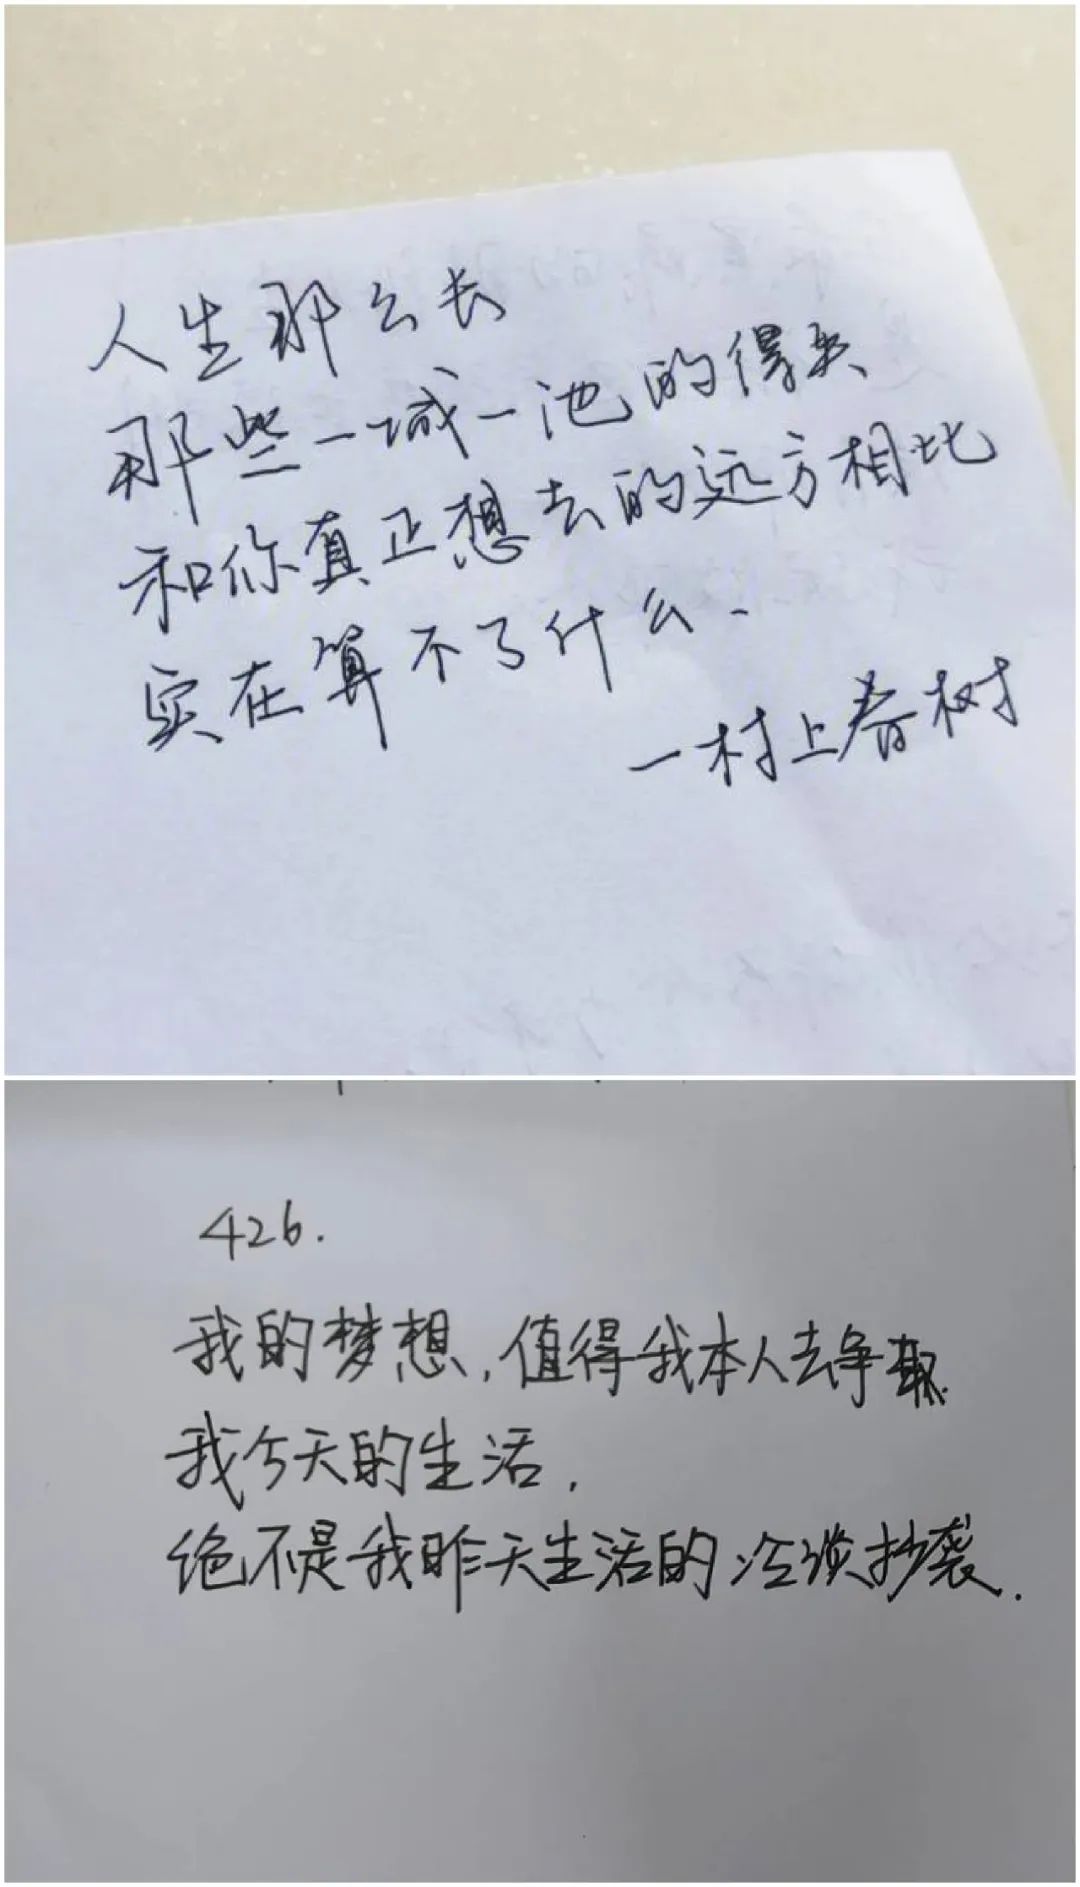 人生那么长
那些一城一池的得失
和你真正想去的远方相比
实在算不了什么.
—村上春树
426.
我的梦想,值得我本人去争取
我今天的生活,
绝不是我昨天生活的冷淡抄袭.